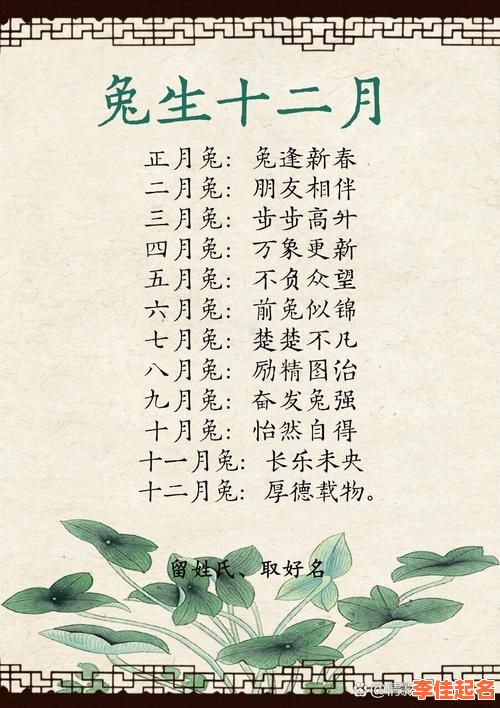 兔生十二月
正月兔：兔逢新春
二月兔：朋友相伴
三月兔：步步高升
四月兔：万象更新
五月兔：不负众望
六月兔：前兔似锦
七月兔：楚楚不凡
八月兔：励精图治
九月兔：奋发兔强
十月兔：怡然自得
十一月兔：长乐未央
十二月兔：厚德载物。
留姓氏、取好名
李佳起名